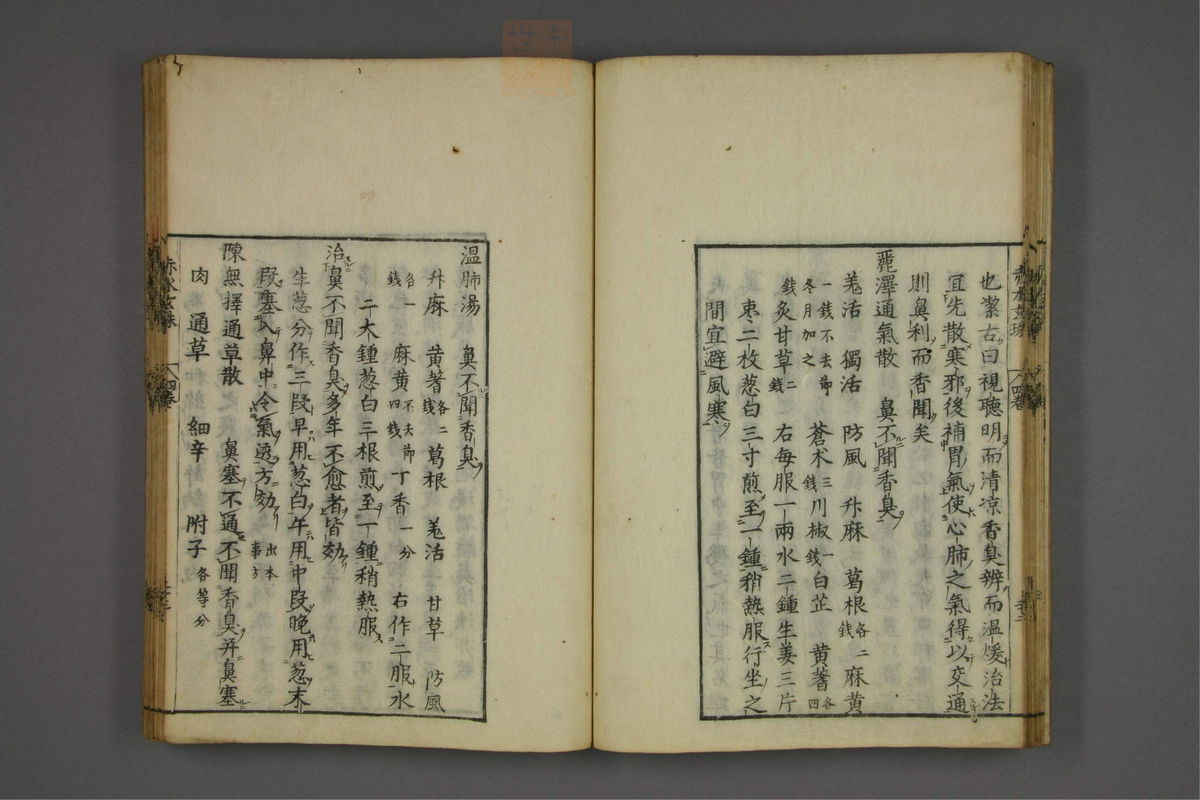 也潔古曰視聽明而清凉香臭辨而温煖治法
宜先散寒邪後補胃氣使心肺之氣得以交通
則鼻利而香聞矣
麗澤通氣散　鼻不聞香臭
羗活　獨活　防風　升麻　葛根各二錢　麻黄
一錢不去節冬月加之　蒼朮三錢　川椒一錢　白芷　黄蓍各四
錢　炙甘草二錢　右每服一兩水二鍾生姜三片
枣二枚葱白三寸煎至一鍾稍熱服行坐之
間宜避風寒
温肺湯　鼻不聞香臭
升麻　黄蓍各二錢　葛根　羗活　甘草　防風
各一錢　麻黄不去節四錢　丁香一分　右作二服水
二大鍾葱白三根煎至一鍾稍熱服
治鼻不聞香臭多年不愈者皆効
生葱分作三段早用葱白午用中段晚用葱末
段塞入鼻中令氣透方効　出本事方
陳無擇通草散　鼻塞不通不聞香臭并鼻塞
肉　通草　細辛　附子各等分
赤水玄珠　四卷